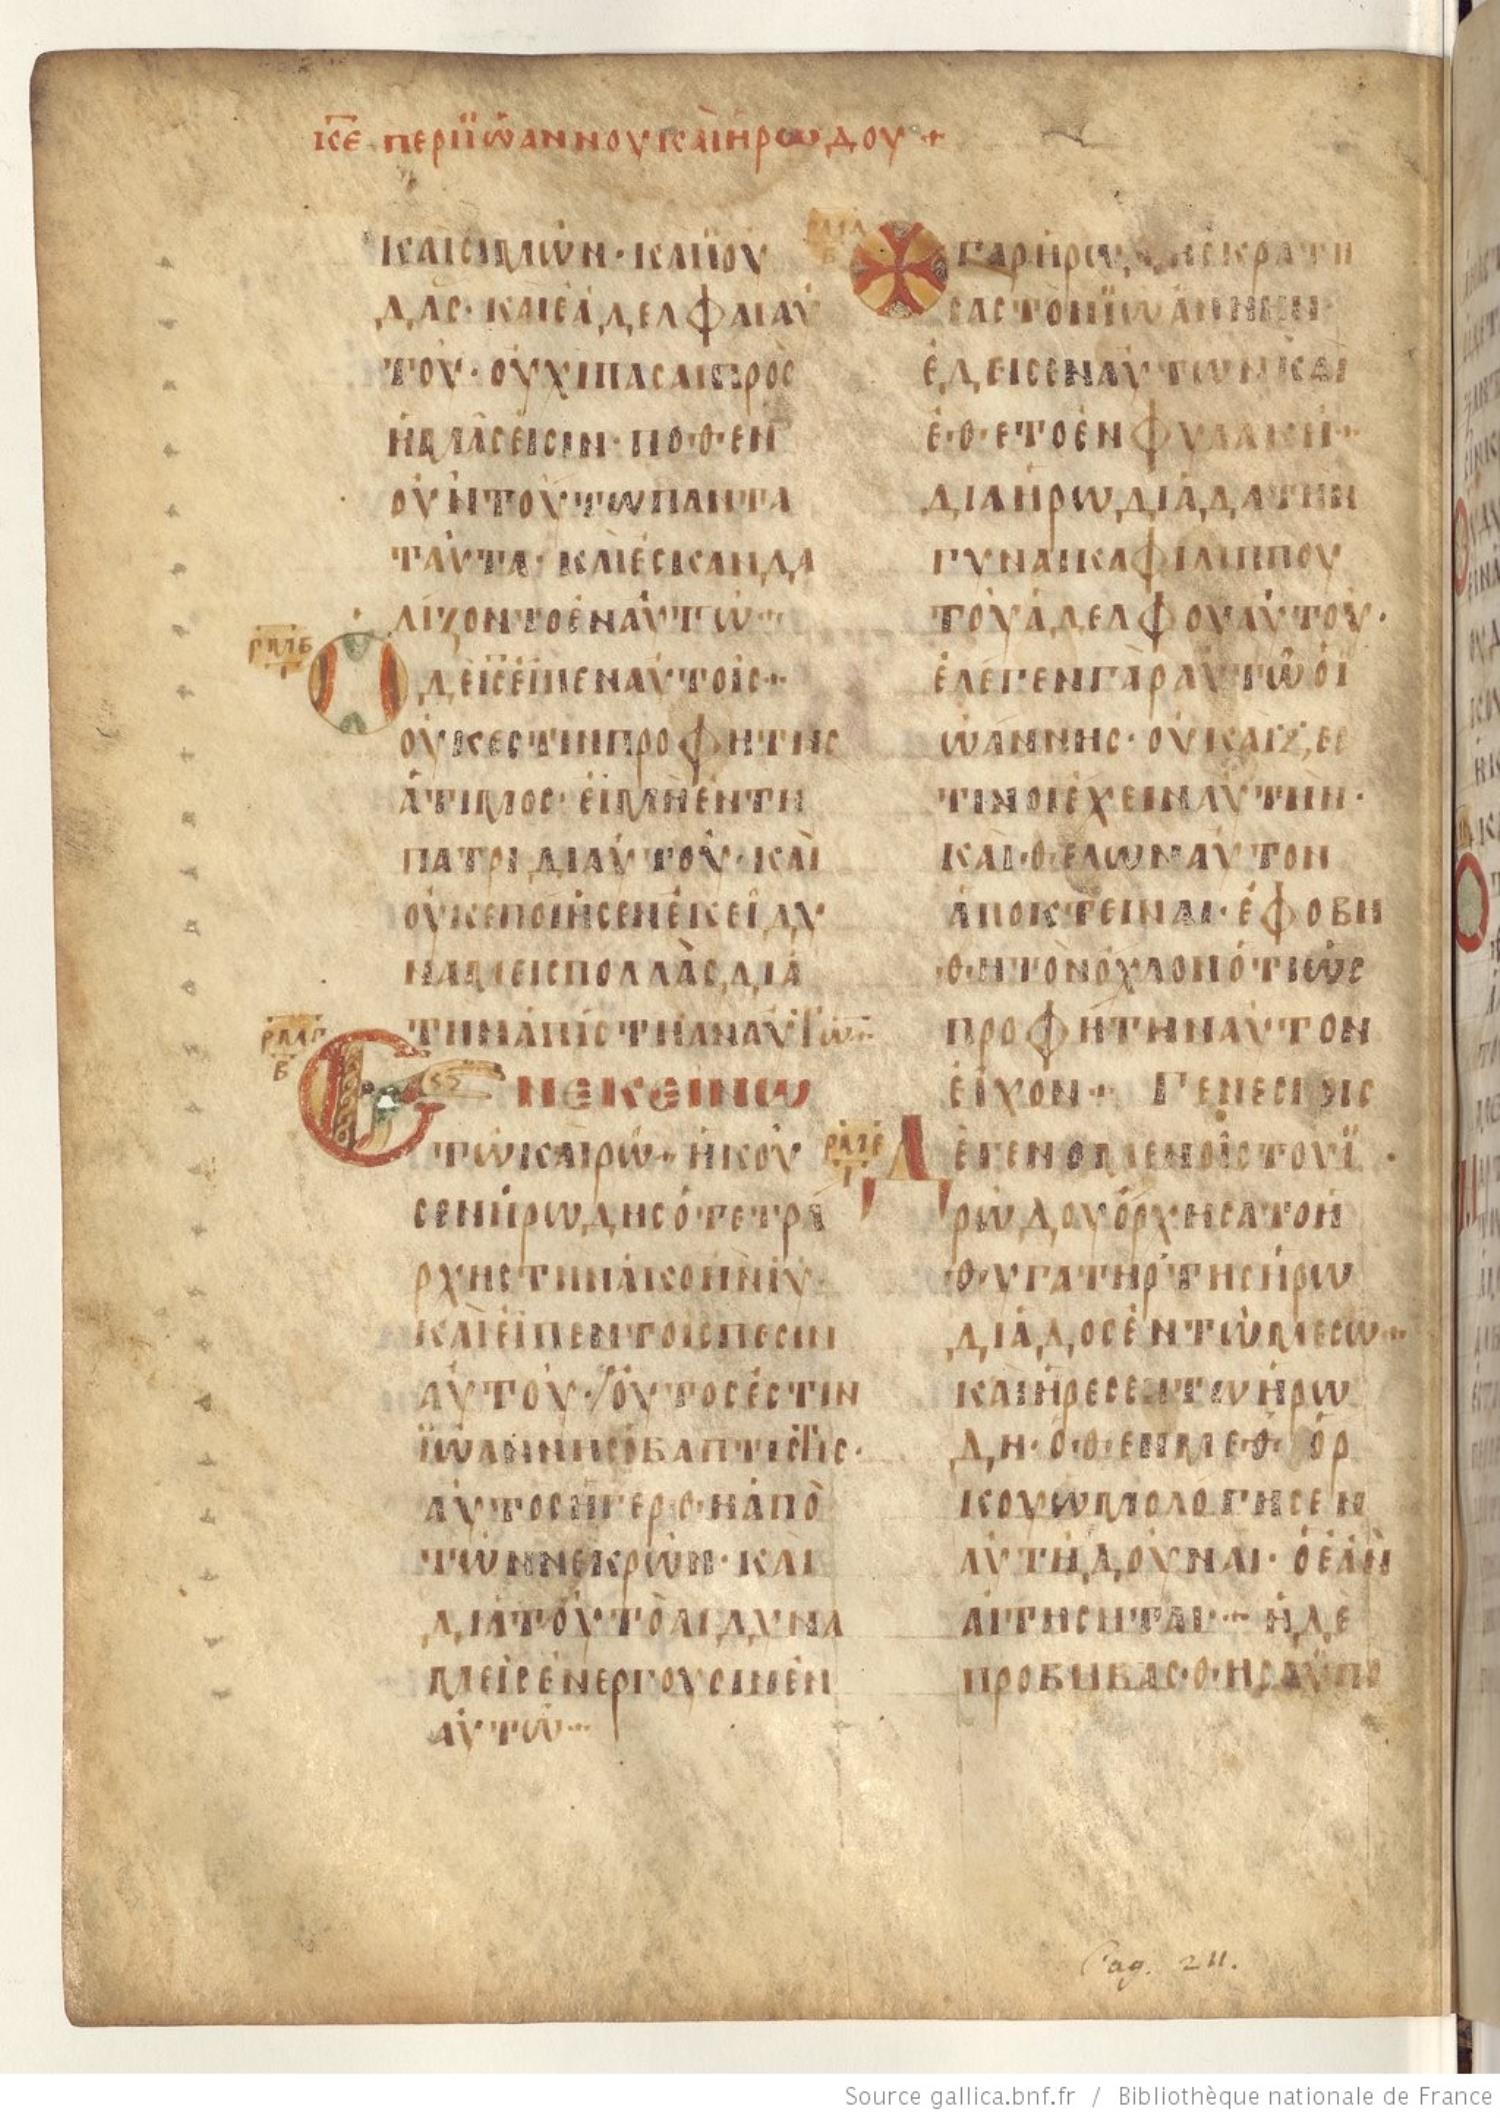 κ̅ε̅ περιϊωαννουκαιηρωδου+
ΚΑΙCΙΜΩΝ·ΚΑΙΪΟΥ
ΔΑC·ΚΑΙΕΑΔΕΛΦΑΙΑΥ
ΤΟΥ·ΟΥΧΙΠΑCΑΙΠΡΟC
ΗΜΑCΕΙCΙΝ·ΠΟΘΕΝ
ΟΥΝΤΟΥΤΩΠΑΝΤΑ
ΤΑΥΤΑ·ΚΑΙΕCΚΑΝΔΑ
ΛΙΖΟΝΤΟΕΝΑΥΤΩ
ΡΜΒ
Ι
Ο ΔΕΙCΕΙΠΕΝΑΥΤΟΙC
ΟΥΚΕCΤΙΝΠΡΟΦΗΤΗC
ΑΤΙΜΟC·ΕΙΜΗΕΝΤΗ
ΠΑΤΡΙΔΙΑΥΤΟΥ·ΚΑΙ
ΟΥΚΕΠΟΙΗCΕΝΕΚΕΙΔΥ
ΝΑΜΕΙCΠΟΛΛΑCΔΙΑ
ΤΗΝΑΠΙCΤΗΑΝΑΥΤΩ
Β
Ε ΝΕΚΕΙΝΩ
ΤΩΚΑΙΡΩ ΗΚΟΥ
CΕΝΗΡΩΔΗCΟΤΕΤΡΑ
ΡΧΗCΤΗΝΑΚΟΗΝΙΥ
ΚΑΙΕΙΠΕΝΤΟΙCΠΕCΙΝ
ΑΥΤΟΥ·ΟΥΤΟCΕCΤΙΝ
ΪΩΑΝΝΗCΟΒΑΠΤΙCΤΗC·
ΑΥΤΟCΗΓΕΡΘΗΑΠΟ
ΤΩΝΝΕΚΡΩΝ·ΚΑΙ
ΔΙΑΤΟΥΤΟΑΙΔΥΝΑ
ΜΕΙCΕΝΕΡΓΟΥCΙΝΕΝ
ΑΥΤΩ
Ο ΓΑΡΗΡΩΔΗCΚΡΑΤΗ
CΑCΤΟΝΪΩΑΝΝΗΝ
ΕΔΕΙCΕΝΑΥΤΩΝΚΑΙ
ΕΘΕΤΟΕΝΦΥΛΑΚΗ
ΔΙΑΗΡΩΔΙΑΔΑΤΗΝ
ΓΥΝΑΙΚΑΦΙΛΙΠΠΟΥ
ΤΟΥΑΔΕΛΦΟΥΑΥΤΟΥ·
ΕΛΕΓΕΝΓΑΡΑΥΤΩΟΪ
ΩΑΝΝΗC·ΟΥΚΑΙΞΕ
ΤΙΝΟΙΕΧΕΙΝΑΥΤΗΝ·
ΚΑΙΘΕΛΩΝΑΥΤΟΝ
ΑΠΟΚΤΕΙΝΑΙ·ΕΦΟΒΗ
ΘΗΤΟΝΟΧΛΟΝΟΤΙΩC
ΠΡΟΦΗΤΗΝΑΥΤΟΝ
ΕΙΧΟΝ ΓΕΝΕCΙΟΙC
ΡΜΕ
Ι
Δ ΕΓΕΝΟΜΕΝΟΙCΤΟΥΪ
ΡΩΔΟΥΟΡΧΗCΑΤΟΗ
ΘΥΓΑΤΗΡΤΗCΗΡΩ
ΔΙΑΔΟCΕΝΤΩΜΕCΩ
ΚΑΙΗΡΕCΕΝΤΩΗΡΩ
ΔΗ·ΟΘΕΝΜΕΘΟΡ
ΚΟΥΩΜΟΛΟΓΗCΕΝ
ΑΥΤΗΔΟΥΝΑΙ·ΟΕΑΝ
ΑΙΤΗCΗΤΑΙ ΗΔΕ
ΠΡΟΒΗΒΑCΘΗCΑΥΠΟ
Pag. 211.
Source gallica.bnf.fr / Bibliothèque nationale de France